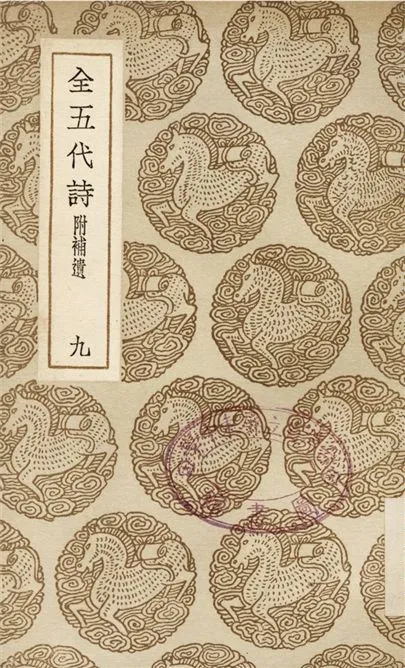 全五代詩
附補遺
九